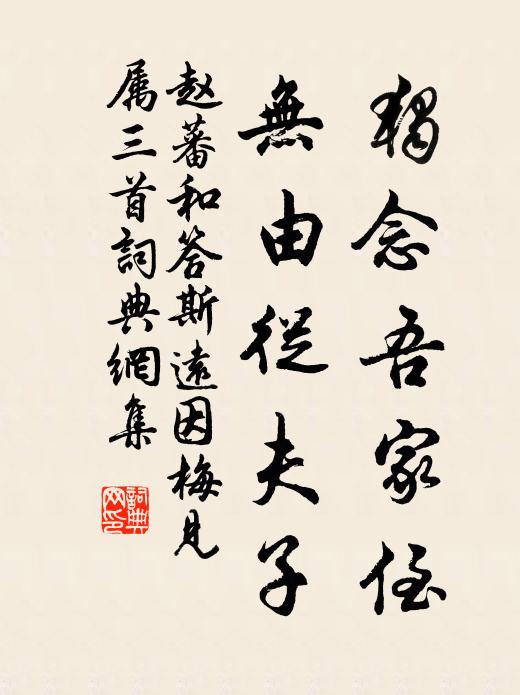 獨念吾家侄
無由從夫子
赵蕃和答斯遠因梅見
属三首詞典網集
詞典
网印